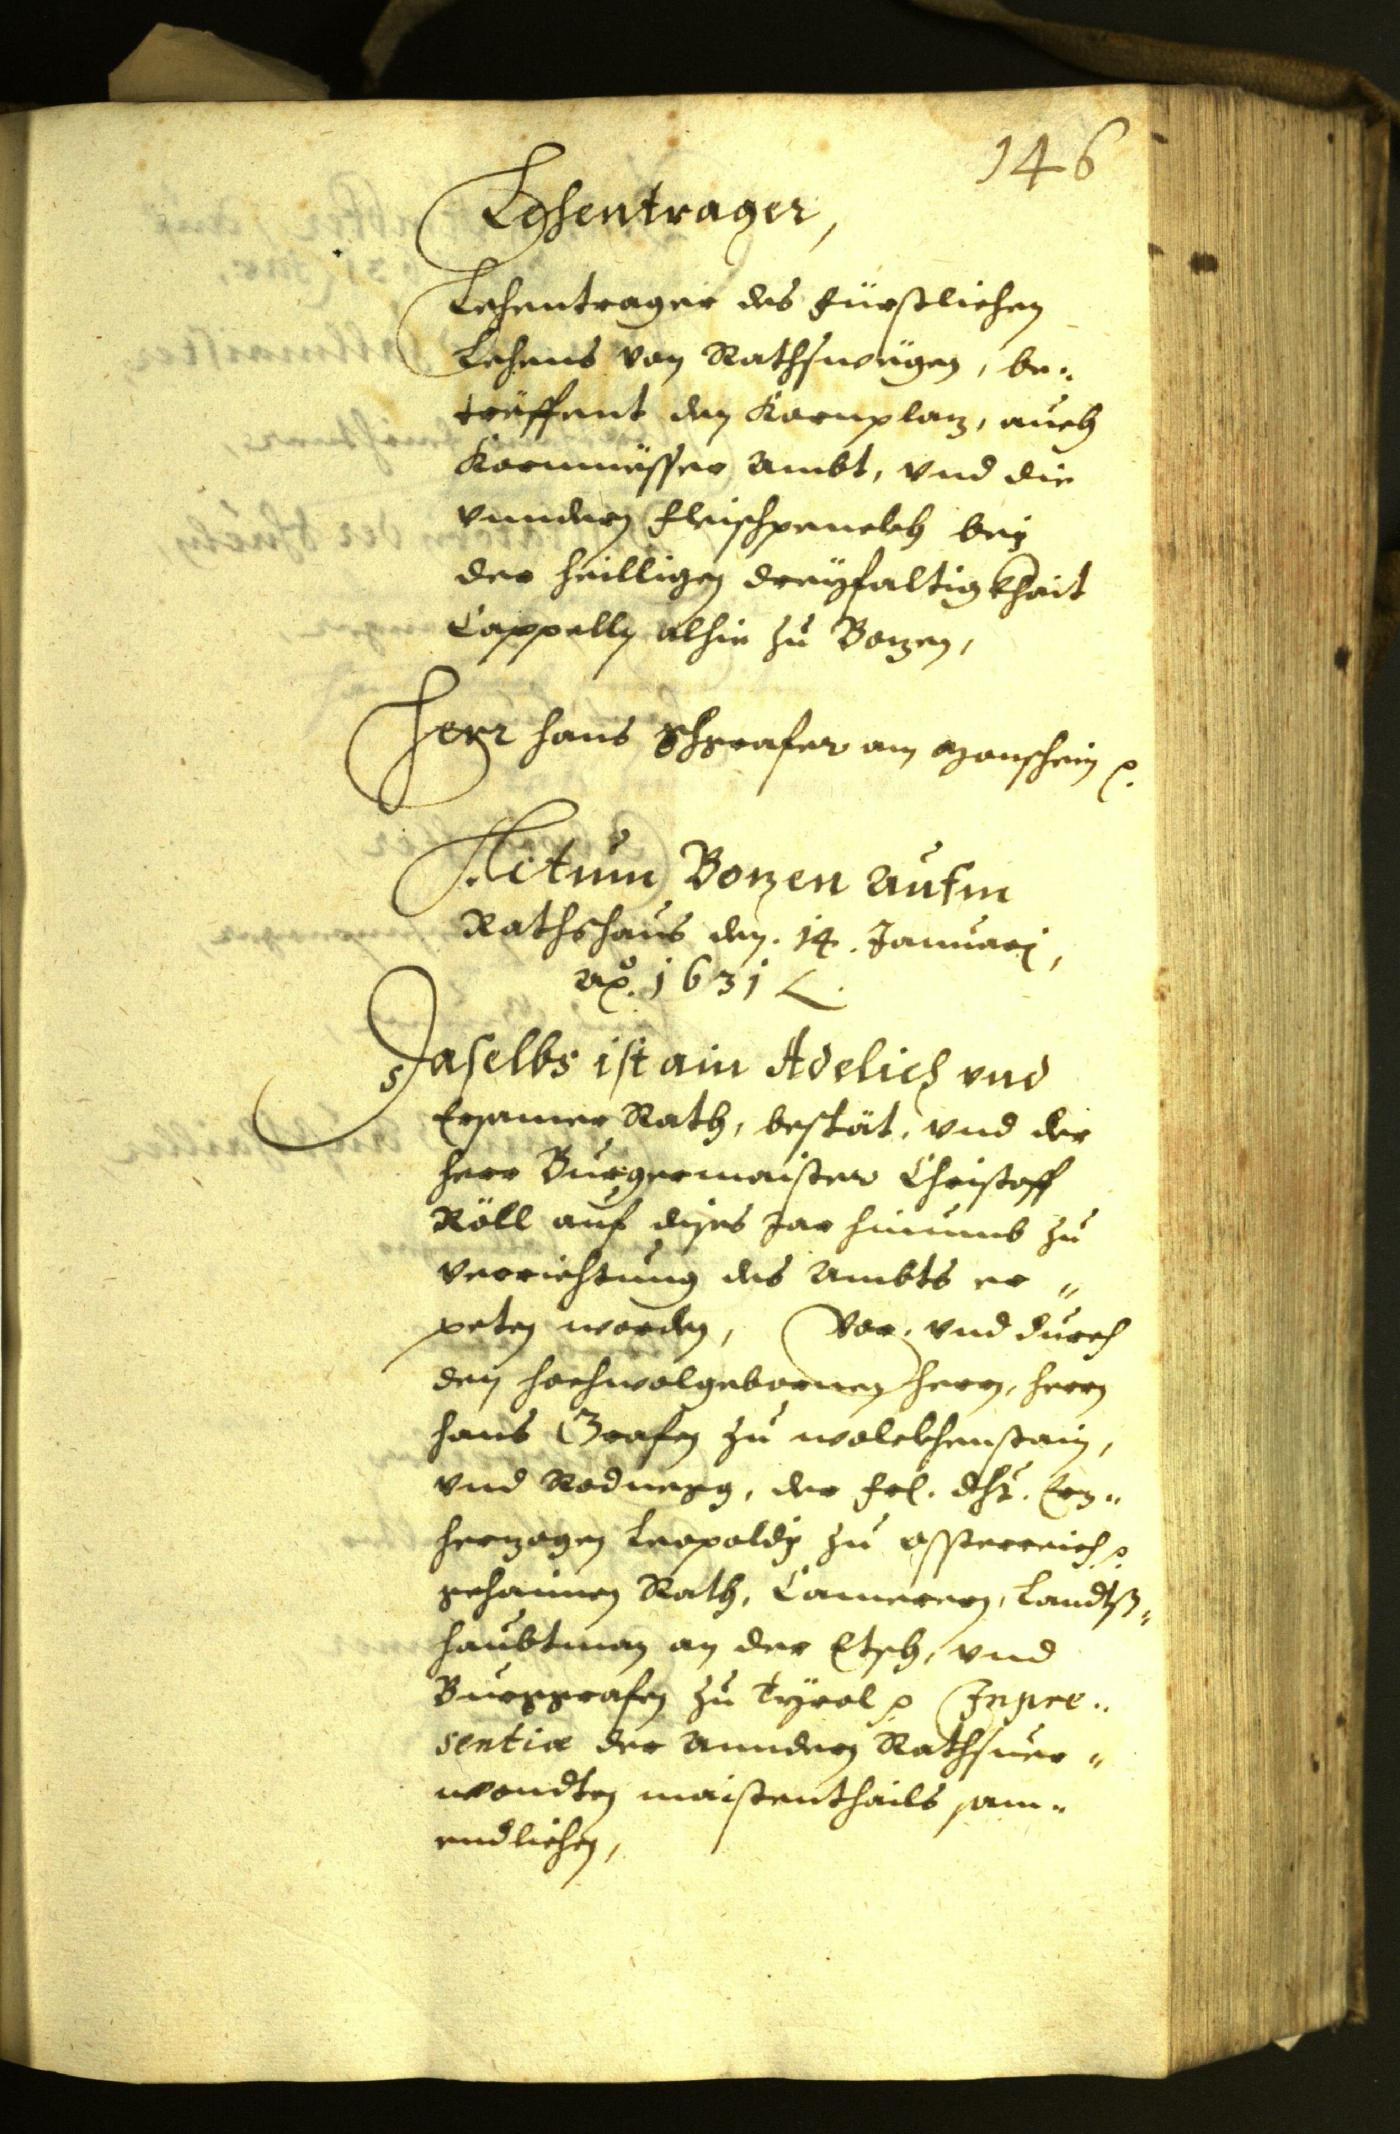 146
Lehentrager,
Lehentrager des fürstlichen
Lehens von Rathswegen, be„
treffent den Kornplaz, auch
Kornmesser Ambt, vnd die
vnndern fleischpennckh bey
der heilligen dreyfaltigkhait
Cappelln alhie zu Bozen,
Herr Hans Schgrafer am Monschein p.
Actum Bozen aufm
Rathshaus den. 14. Januarj,
ao. 1631
Daselbs ist ain Adelich vnd
Ersamer Rath, bestät, vnd der
herr Burgermaister Christoff
Röll auf dises Jar hinumb zu
verrichtung des Ambts er„
peten worden, Vor. vnd durch
den hochwolgebornen herrn, herrn
Hans Grafen zu wolckhenstain,
vnd Rodnegg, der frl. dht. Erz„
herzogen Leopoldj zu össterreich p
gehaimen Rath, Camerern, Landts„
haubtman an der Etsch, vnd
Burggrafen zu Tyrol p Inpre„
sentia der Anndern Rathsuer„
wondten maistenthails sam„
endlichen,